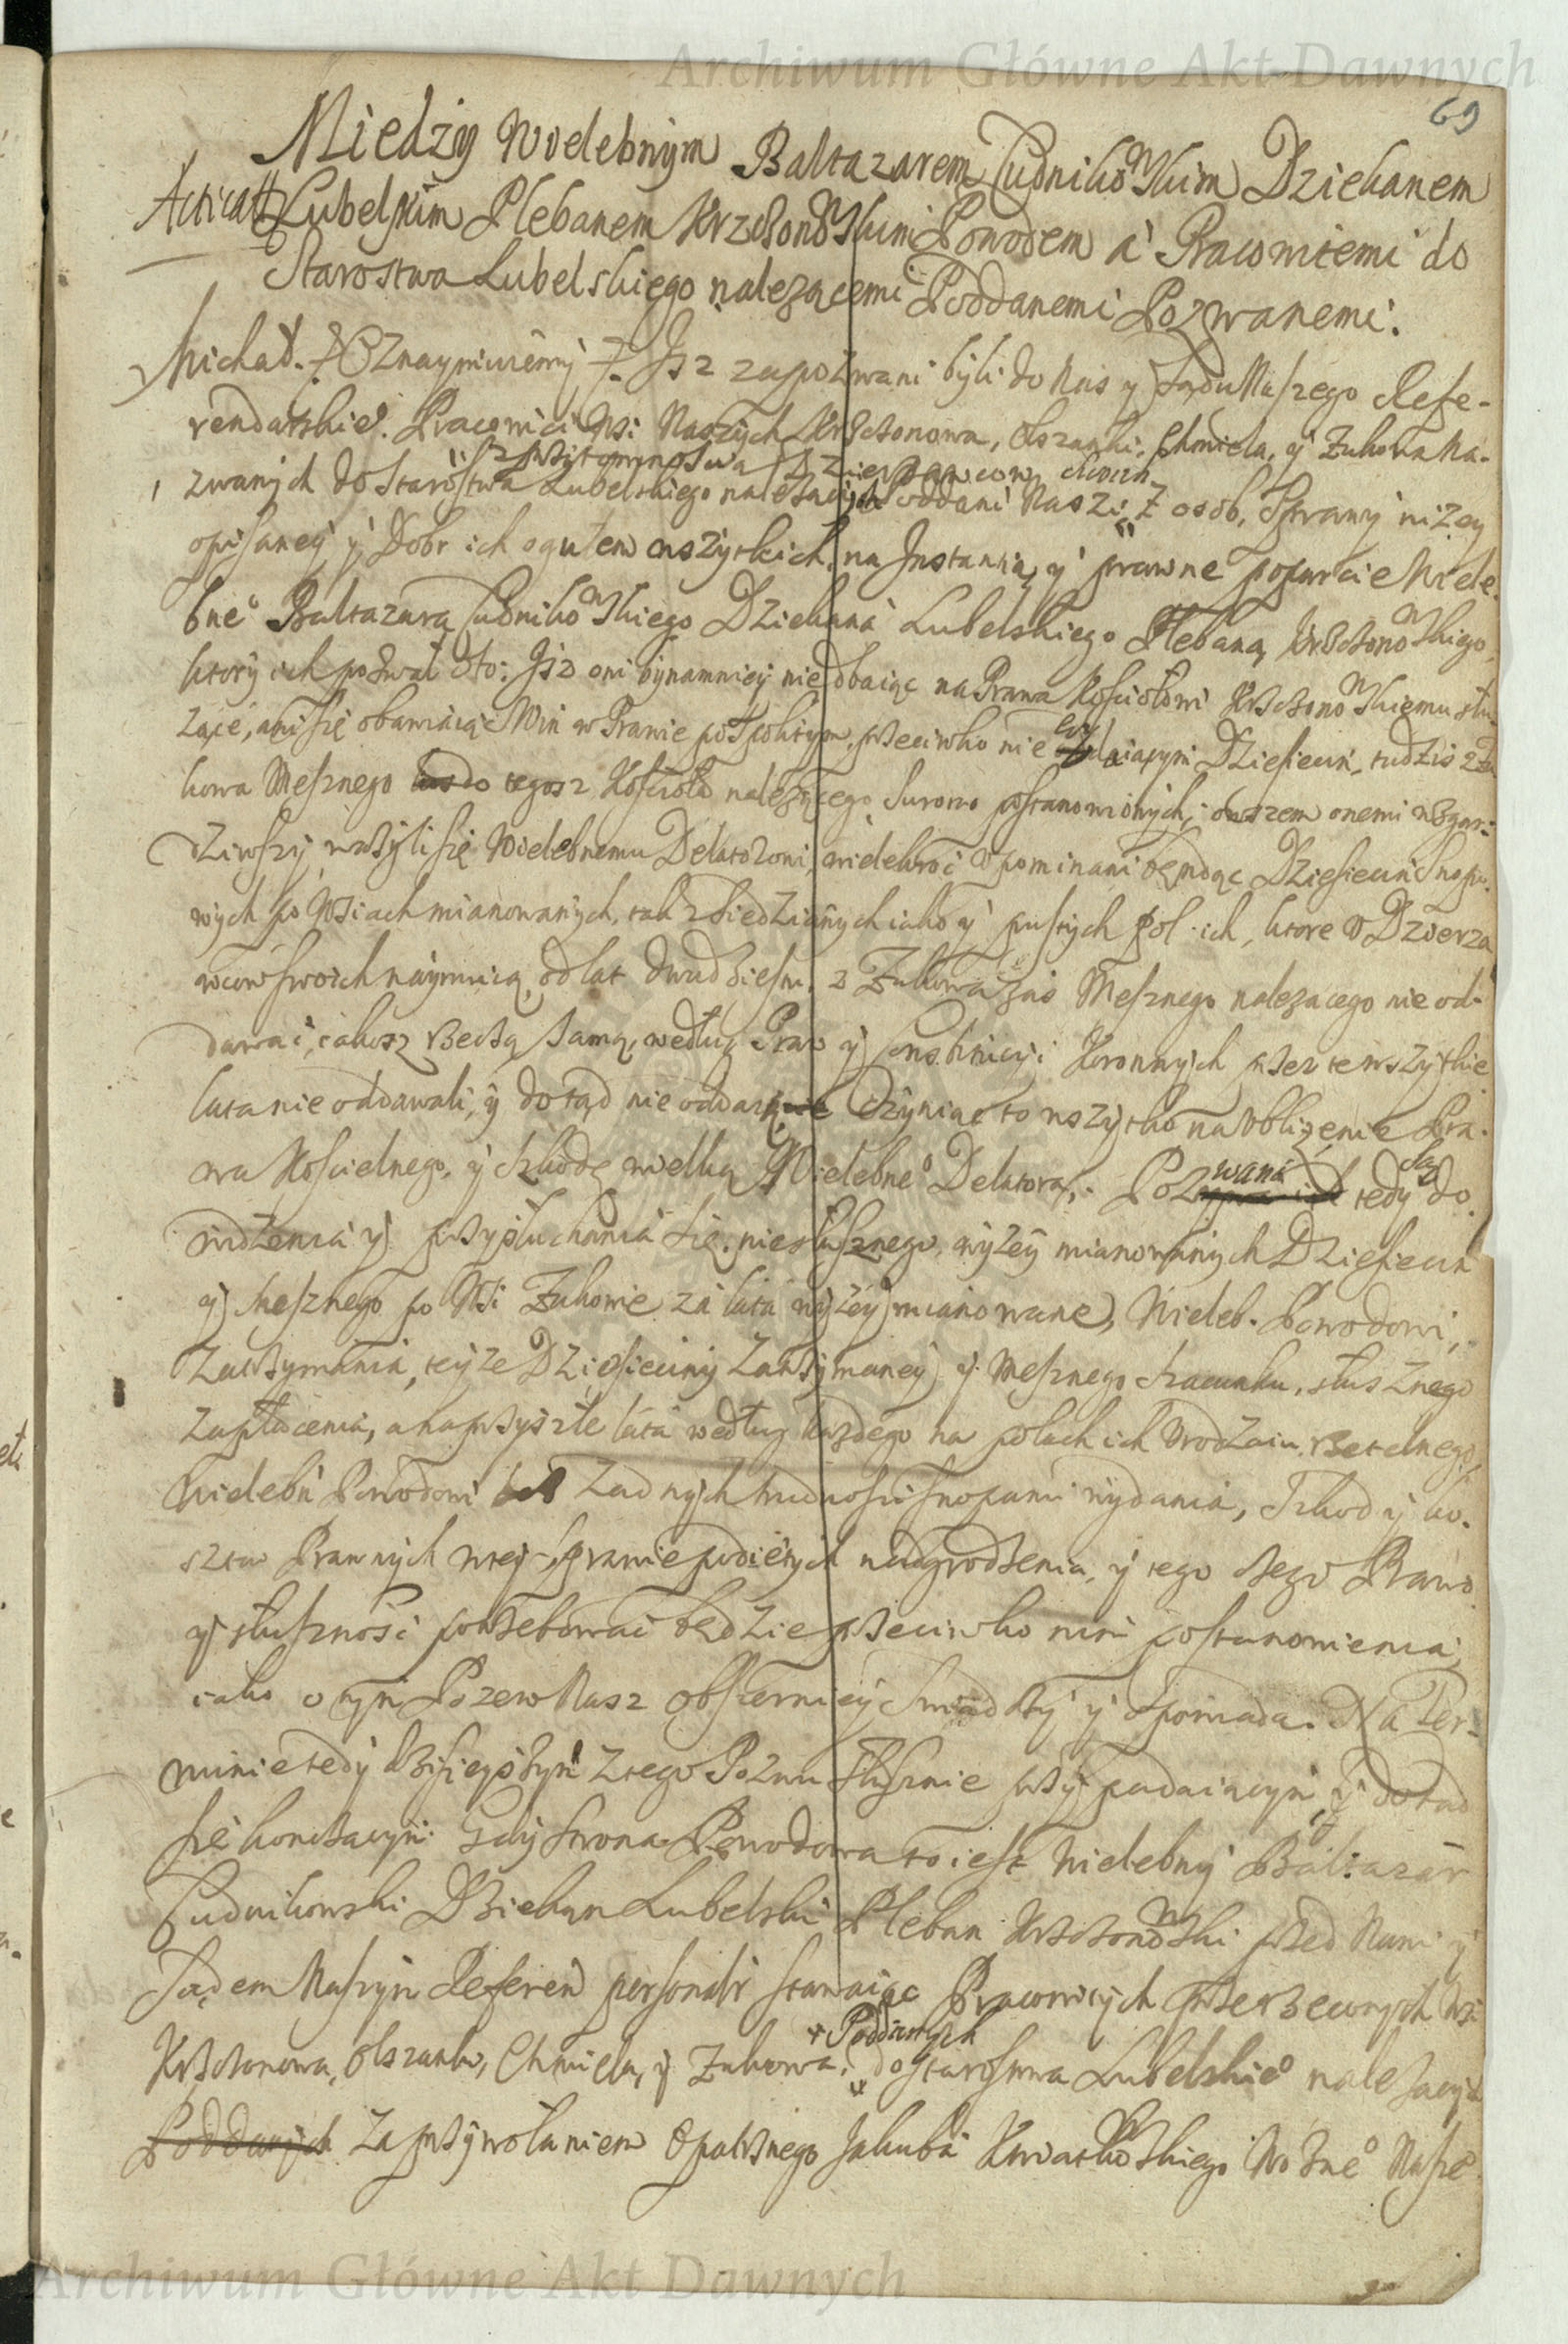 Archiwum Główne Akt Dawnych
69
Między Wielebnym Baltazarem Cudnikowskim Dziekanem
Acticatt Lubelskim Plebanem Krzczonowskim Powodem a Pracowitemi do
Starostwa Lubelskiego należącemi Poddanemi Pozwanemi.
Michał. Oznaymuiemy Isz zapozwani byli do Nas y Sądu Naszego Refe-
rendarskie° Pracowici Wsi Naszych Krzczonowa, Olszanki, Chmiela, y Żukowa Na-
z przytomnością Dzierżawcow swoich
zwanych do Starostwa Lubelskiego należących Poddani Naszi z osob, Sprawy niżey
opisaney y Dobr ich ogułem wszystkich, na Instantią y prawne poparcie Wiele
bne° Baltazara Cudnikowskiego Dziekana Lubelskiego Plebana Krzczonowskiego,
ktory ich pozwał oto: Isz oni bynamniey nie dbaiąc na Prawa Kosciołowi Krzczonowskiemu słu
zące, ani się obawiaiąc Win w Prawie pospolitym, przeciwko nie daiącym Dziesięcin, tudzis z Żu
kowa Mesznego do tegosz Kościoła należącego surowo postanowionych, owszem onemi wzgar-
dziwszy, ważyli się Wielebnemu Delatorowi, wielekroć upominani będąc Dziesięcin snopo-
wych po Wsiach mianowanych, tak z siedzianych iako y pustych pol ich, ktore u Dzierża
wcow swoich naymuią, od lat dwudziestu, z Żukowa zaś Mesznego należącego nie od-
dawać, iakosz rzeczą samą, według Praw y Constitucyi Koronnych przez te wszytkie
lata nie oddawali, y dotąd nie oddaią Czyniąc to wszytko na ubliżenie Pra-
wa Koscielnego, y szkodę wielką Wielebne° Delatora. Pozwani są tedy do
widzenia y przysłuchania się, niesłusznego, wyżey mianowanych Dziesięcin
y Mesznego po Wsi Żukowie za lata wyżey mianowane, Wieleb. Powodowi,
Zatrzymania, teyże Dziesięciny Zatrzymaney y Mesznego szacunku, słusznego
Zapłacenia, a na przyszłe lata według każdego na polach ich Urodzaiu rzetelnego,
Wielebn Powodowi bez Zadnych trudności snopami wydania, Szkod y ko-
sztow Prawnych w tey sprawie podiętych nadgrodzenia, y tego czego Prawo
y słuszność potrzebować będzie przeciwko nim postanowienia,
iako o tym Pozew Nasz obszerniey swiadczy y opowiada. Na Ter-
minie tedy dzisieyszym z tego Pozwu słusznie przypadaiącym y dotąd
się kończącym. Gdy strona Powodowa to iest Wielebny Baltazar
Cudnikowski Dziekan Lubelski Pleban Krzczonowski przed Nami y
Sądem Naszym Referen personalr stawaiąc Pracowitych przerzeczonych Wsi
Poddanych
Krzczonowa, Olszanki, Chmiela, y Żukowa, do Starostwa Lubelskie° należących
Poddanych Za przywołaniem Opatrznego Jakuba Kwiatkowskiego Woźne° Nasze°
Archiwum Główne Akt Dawnych